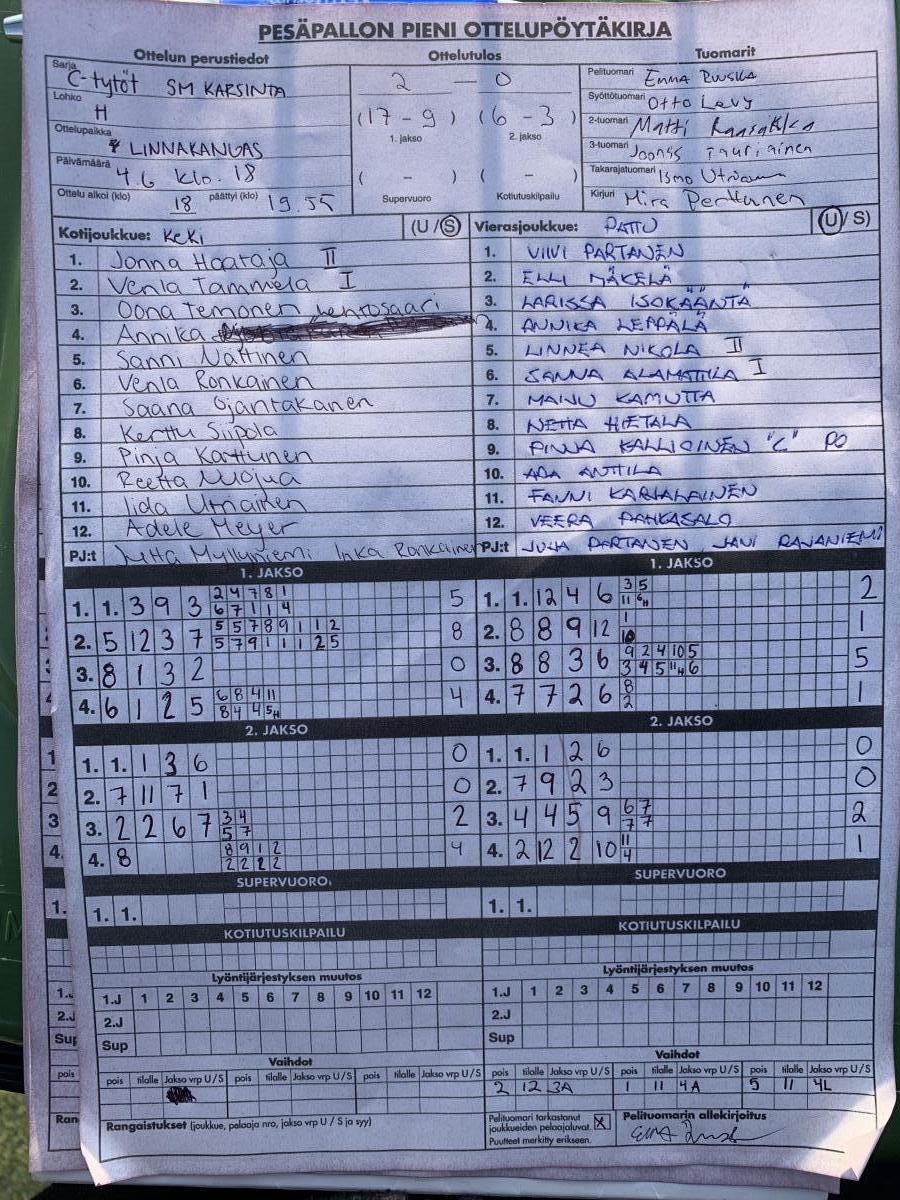 PESÄPALLON PIENI OTTELUPÖYTÄKIRJA
Ottelun perustiedot Ottelutulos Tuomarit
Sarja C-tytöt SM KARSINTA
Lohko H
Ottelupaikka LINNAKANGAS
Päivämäärä 4.6 klo. 18
Ottelu alkoi (klo) 18 päättyi (klo) 19.55
2 — 0
(17 - 9) (6 - 3)
1. jakso 2. jakso
( - ) ( - )
Supervuoro Kotiutuskilpailu
Pelituomari Emma
Syöttötuomari Otto Levy
2-tuomari Matti
3-tuomari
Takarajatuomari Ismo
Kirjuri Mira Perttunen
Kotijoukkue: KeKi (U / S)
1. Jonna Haataja II
2. Venla Tammela I
3. Oona Temonen Lehtosaari
4. Annika
5. Sanni Nättinen
6. Venla Ronkainen
7. Saana Ojantakanen
8. Kerttu Siipola
9. Pinja Karttunen
10. Reetta Mojua
11. Iida Utriainen
12. Adele Meyer
PJ:t Jutta Myllyniemi Inka Ronkainen
Vierasjoukkue: PATTU (U / S)
1. VIIVI PARTANEN
2. ELLI MÄKELÄ
3. LARISSA ISOKÄÄNTÄ
4. ANNIKA LEPPÄLÄ
5. LINNEA NIKOLA II
6. SANNA ALAMATTILA I
7. MAINU KAMUTTA
8. NETTA HIETALA
9. PINJA KALLIOINEN "C" PO
10. ADA ANTTILA
11. FANNI KARJALAINEN
12. VEERA PAHKASALO
PJ:t JUHA PARTANEN JANI RAJANIEMI
1. JAKSO
1. 1. 3 9 3 2 4 7 8 1 5
6 7 1 1 4
2. 5 12 3 7 5 5 7 8 9 1 1 2 8
5 7 9 1 1 1 2 5
3. 8 1 3 2 0
4. 6 1 2 5 6 8 4 11 4
8 4 4 5H
2. JAKSO
1. 1. 1 3 6 0
2. 7 11 7 1 0
3. 2 2 6 7 3 4 2
5 7
4. 8 8 9 1 2 4
2 2 2 2
SUPERVUORO
1. 1.
KOTIUTUSKILPAILU
Lyöntijärjestyksen muutos
1.J 1 2 3 4 5 6 7 8 9 10 11 12
2.J
Sup
Vaihdot
pois tilalle Jakso vrp U/S pois tilalle Jakso vrp U/S pois tilalle Jakso vrp U/S
Rangaistukset (joukkue, pelaaja nro, jakso vrp U / S ja syy)
1. JAKSO
1. 1. 12 4 6 3 5 2
11 6H
2. 8 8 9 12 1 1
10
3. 8 8 3 6 9 2 4 10 5 5
3 4 5 11H 6
4. 7 7 2 6 8 1
2
2. JAKSO
1. 1. 1 2 6 0
2. 7 9 2 3 0
3. 4 4 5 9 6 7 2
7 7
4. 2 12 2 10 11 1
4
SUPERVUORO
1. 1.
KOTIUTUSKILPAILU
Lyöntijärjestyksen muutos
1.J 1 2 3 4 5 6 7 8 9 10 11 12
2.J
Sup
Vaihdot
pois tilalle Jakso vrp U/S pois tilalle Jakso vrp U/S pois tilalle Jakso vrp U/S
2 12 3A 1 11 4A 5 11 4L
Pelituomari tarkastanut
joukkueiden pelaajaluvat. X
Puutteet merkitty erikseen.
Pelituomarin allekirjoitus